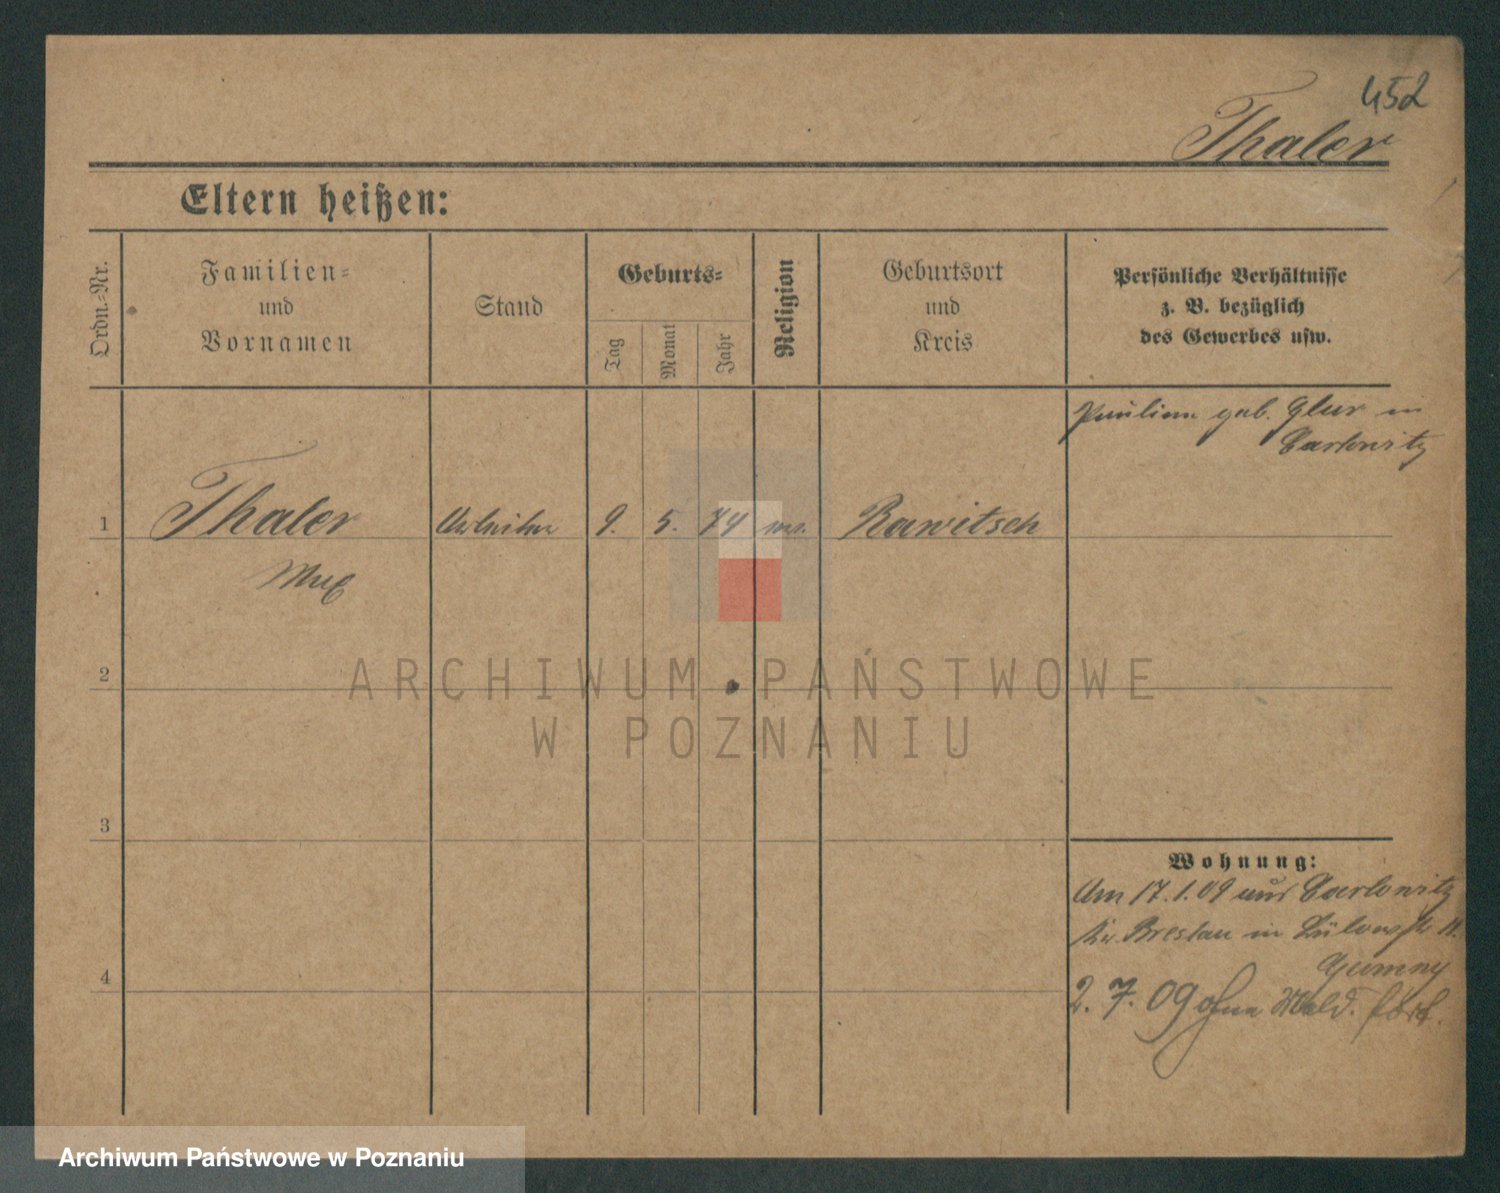 452
Thaler
Eltern heißen:
Ordn.-Nr.
Familien-
und
Vornamen
Stand
Geburts-
Tag
Monat
Jahr
Religion
Geburtsort
und
Kreis
Persönliche Verhältnisse
z. B. bezüglich
des Gewerbes usw.
geb. in
Carlowitz
1
Thaler
Arbeiter
9.
5.
74
Rawitsch
Max
2
ARCHIWUM PAŃSTWOWE
W POZNANIU
3
Wohnung:
Am 17.1.09 aus Carlowitz
Kr. Breslau in 11.
4
2.7.09 ohne Meld. fort.
Archiwum Państwowe w Poznaniu